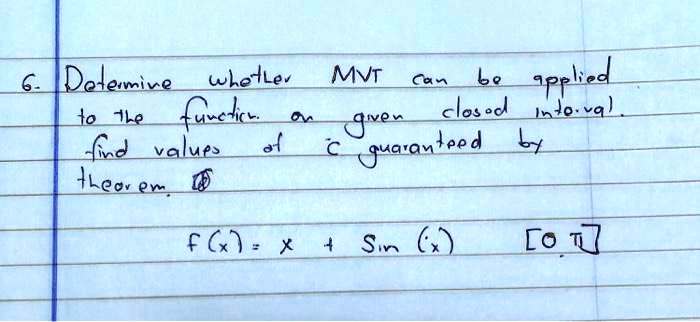 6. Determine whether MVT can be applied
to the function on given closed interval.
find values of c guaranteed by
theorem.
f(x) = x + Sin (x) [0, π]